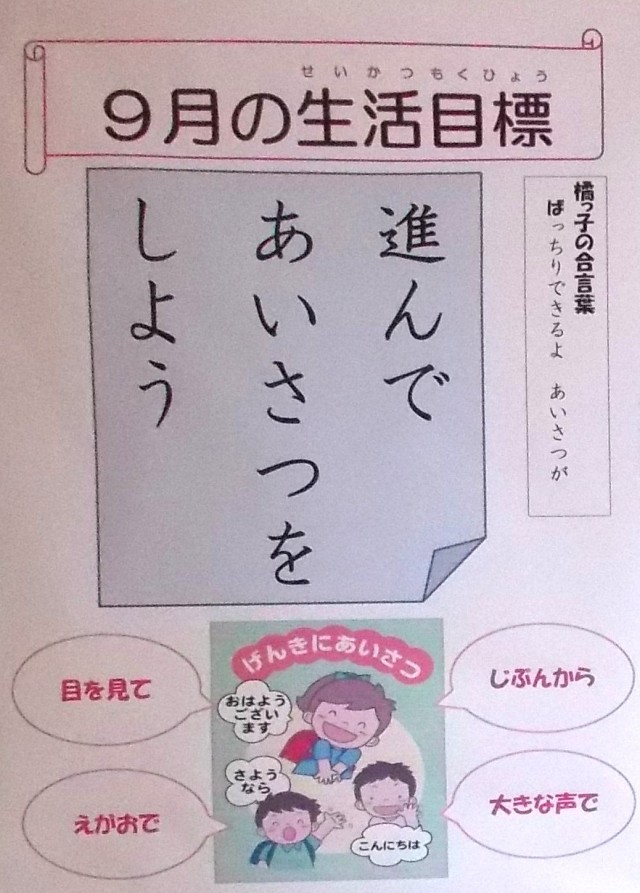 せいかつもくひょう
9月の生活目標
橘っ子の合言葉
ばっちりできるよ　あいさつが
進んで
あいさつを
しよう
げんきにあいさつ
おはよう
ござい
ます
さよう
なら
こんにちは
目を見て
じぶんから
えがおで
大きな声で